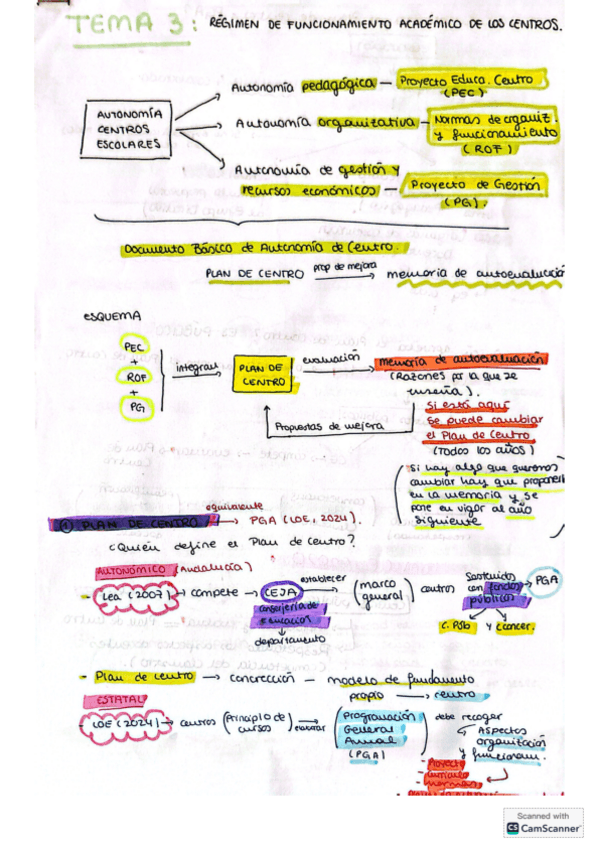 TEMA 3: RÉGIMEN DE FUNCIONAMIENTO ACADÉMICO DE LOS CENTROS.
AUTONOMÍA
CENTROS
ESCOLARES
Autonomía pedagógica — Proyecto Educa. Centro
(PEC).
Autonomía organizativa — Normas de organiz.
y funcionamiento
(ROF)
Autonomía de gestión y
recursos económicos — Proyecto de Gestión
(PG).
Documento Básico de Autonomía de Centro.
PLAN DE CENTRO prop de mejora → memoria de autoevaluació
ESQUEMA
PEC
+
ROF
+
PG
integran →
PLAN DE
CENTRO
evaluación →
memoria de autoevaluación
(Razones por la que se
enseña).
Propuestas de mejora
Si está aquí
se puede cambiar
el Plan de Centro
(Todos los años)
Si hay algo que queremos
cambiar hay que proponerl
en la memoria y se
pone en vigor al año
siguiente
① PLAN DE CENTRO equivalente → PGA (LOE, 2024).
¿Quién define el Plan de Centro?
AUTONÓMICO (Andalucía)
- Lea (2007) → compete → CEJA establecer → (marco general) centros
consejería de
Educación
↓
departamento
Sostenidos
con fondos → PGA
públicos
C. Púb y Concer.
- Plan de centro → concreción — modelo de fundamento
propio → centro
ESTATAL
- LOE (2024) → centros (Principio de cursos) elaborar →
(Programación
General
Anual
(PGA)
debe recoger
Aspectos
organización
y funcionam.
- Proyecto
- currículo
- normas
Scanned with
CS CamScanner